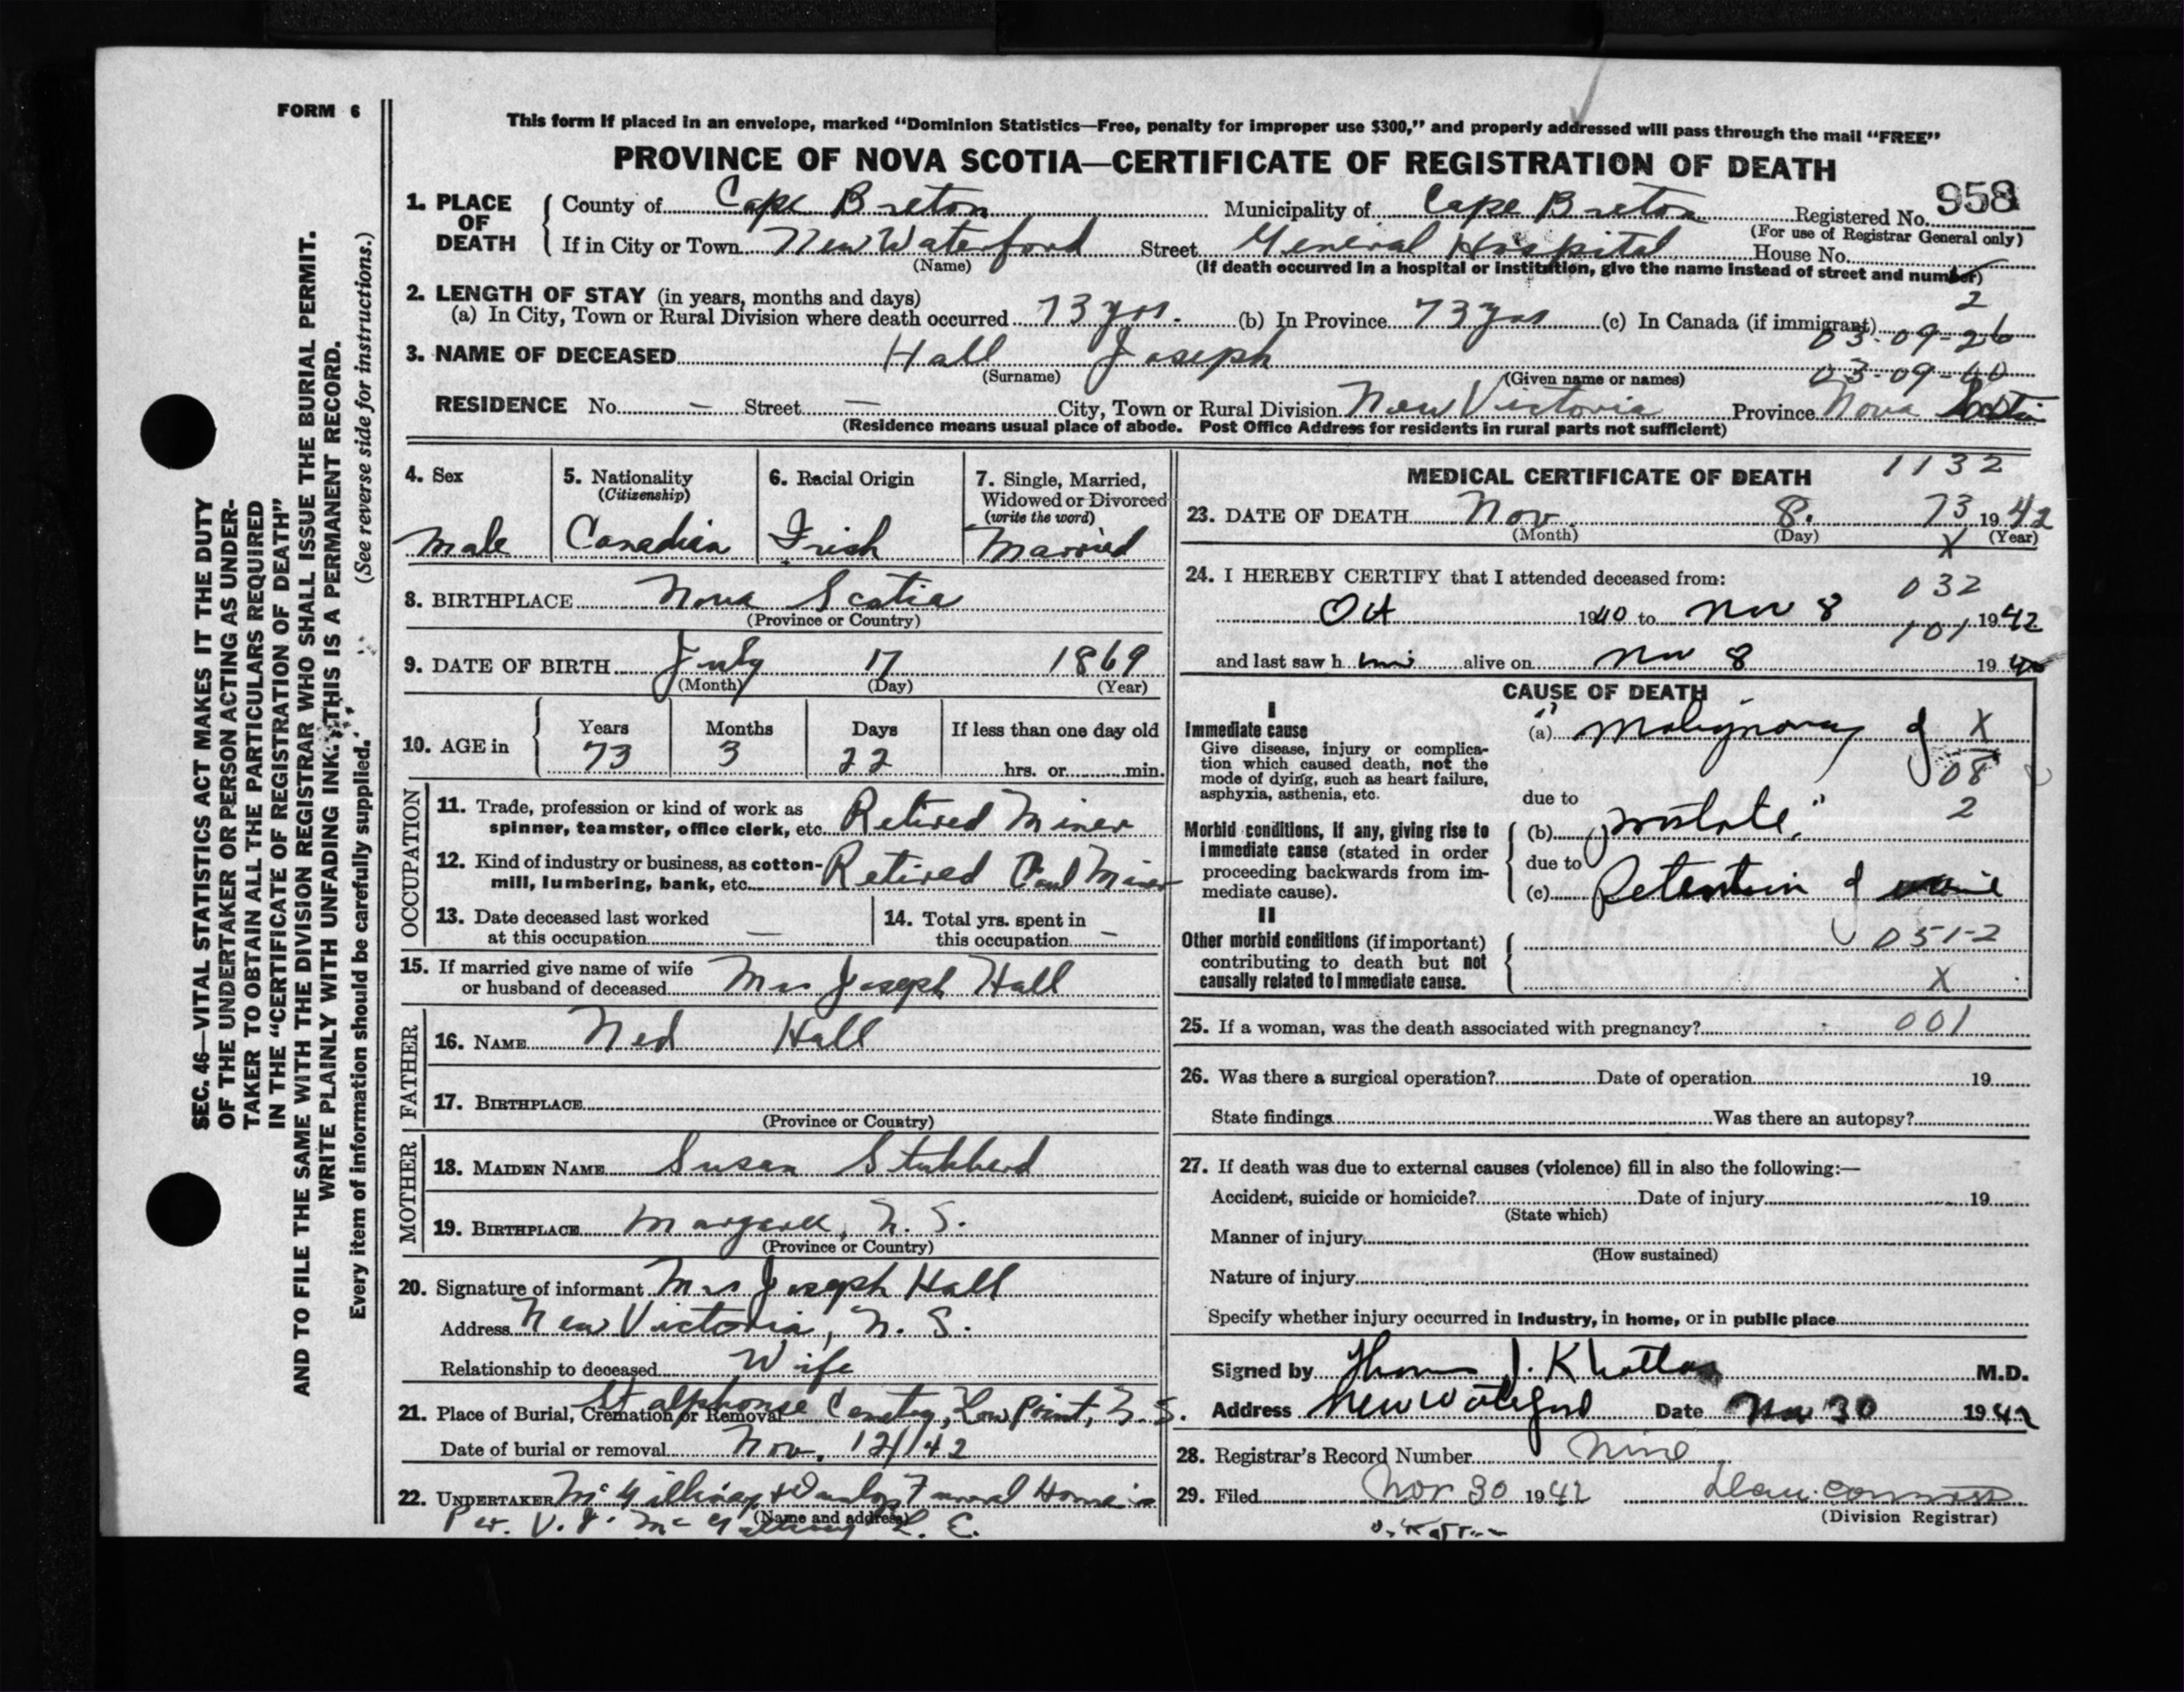 FORM 6
This form if placed in an envelope, marked “Dominion Statistics—Free, penalty for improper use $300,” and properly addressed will pass through the mail “FREE”
PROVINCE OF NOVA SCOTIA—CERTIFICATE OF REGISTRATION OF DEATH
958
1. PLACE OF DEATH
County of Cape Breton Municipality of Cape Breton Registered No.
(For use of Registrar General only)
If in City or Town New Waterford Street General Hospital House No.
(Name) (If death occurred in a hospital or institution, give the name instead of street and number)
2. LENGTH OF STAY (in years, months and days) 2
(a) In City, Town or Rural Division where death occurred 73 yrs. (b) In Province 73 yrs (c) In Canada (if immigrant) 03-09-26
3. NAME OF DECEASED Hall Joseph
(Surname) (Given name or names) 03-09-60
RESIDENCE No. — Street — City, Town or Rural Division New Victoria Province Nova Scotia
(Residence means usual place of abode. Post Office Address for residents in rural parts not sufficient)
4. Sex
Male
5. Nationality
(Citizenship)
Canadian
6. Racial Origin
Irish
7. Single, Married,
Widowed or Divorced
(write the word)
Married
8. BIRTHPLACE Nova Scotia
(Province or Country)
9. DATE OF BIRTH July 17 1869
(Month) (Day) (Year)
10. AGE in
Years Months Days If less than one day old
73 3 22 hrs. or min.
OCCUPATION
11. Trade, profession or kind of work as
spinner, teamster, office clerk, etc. Retired Miner
12. Kind of industry or business, as cotton-
mill, lumbering, bank, etc. Retired Coal Miner
13. Date deceased last worked
at this occupation —
14. Total yrs. spent in
this occupation —
15. If married give name of wife
or husband of deceased Mrs Joseph Hall
FATHER
16. NAME Ned Hall
17. BIRTHPLACE
(Province or Country)
MOTHER
18. MAIDEN NAME Susan Stubberd
19. BIRTHPLACE Margaree, N. S.
(Province or Country)
20. Signature of informant Mrs Joseph Hall
Address New Victoria, N. S.
Relationship to deceased Wife
21. Place of Burial, Cremation or Removal St alphonse Cemetery, Low Point, N. S.
Date of burial or removal Nov. 12/42
22. UNDERTAKER McGillivray & Dunlop Funeral Home
(Name and address)
Per. V. J. McGillivray L. E.
MEDICAL CERTIFICATE OF DEATH 1132
23. DATE OF DEATH Nov. 8. 73 1942
(Month) (Day) X (Year)
24. I HEREBY CERTIFY that I attended deceased from:
032
Oct 1940 to Nov 8 1942
101
and last saw h im alive on Nov 8 19 42
CAUSE OF DEATH
I
Immediate cause
Give disease, injury or complica-
tion which caused death, not the
mode of dying, such as heart failure,
asphyxia, asthenia, etc.
(a) "Malignancy of X
08
due to
2
Morbid conditions, if any, giving rise to
immediate cause (stated in order
proceeding backwards from im-
mediate cause).
(b) prostate."
due to
(c) Retention of urine
II
Other morbid conditions (if important)
contributing to death but not
causally related to immediate cause.
051-2
X
25. If a woman, was the death associated with pregnancy? 001
26. Was there a surgical operation? Date of operation 19
State findings Was there an autopsy?
27. If death was due to external causes (violence) fill in also the following:—
Accident, suicide or homicide? Date of injury 19
(State which)
Manner of injury
(How sustained)
Nature of injury
Specify whether injury occurred in industry, in home, or in public place
Signed by Thomas J. Khattar M.D.
Address New Waterford Date Nov 30 1942
28. Registrar's Record Number Nine
29. Filed Nov 30 1942
(Division Registrar)
SEC. 46—VITAL STATISTICS ACT MAKES IT THE DUTY
OF THE UNDERTAKER OR PERSON ACTING AS UNDER-
TAKER TO OBTAIN ALL THE PARTICULARS REQUIRED
IN THE “CERTIFICATE OF REGISTRATION OF DEATH”
AND TO FILE THE SAME WITH THE DIVISION REGISTRAR WHO SHALL ISSUE THE BURIAL PERMIT.
WRITE PLAINLY WITH UNFADING INK. THIS IS A PERMANENT RECORD.
Every item of information should be carefully supplied. (See reverse side for instructions.)